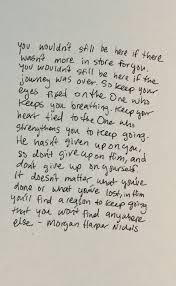 you wouldn't still be here if there
wasn't more in store for you.
You wouldn't still be here if the
journey was over. So keep your
eyes fixed on the One who
keeps you breathing. Keep your
heart tied to the One who
strengthens you to keep going.
He hasn't given up on you,
so don't give up on Him, and
don't give up on yourself.
It doesn't matter what you've
done or what you've lost, in Him
you'll find a reason to keep going
that you won't find anywhere
else - Morgan Harper Nichols